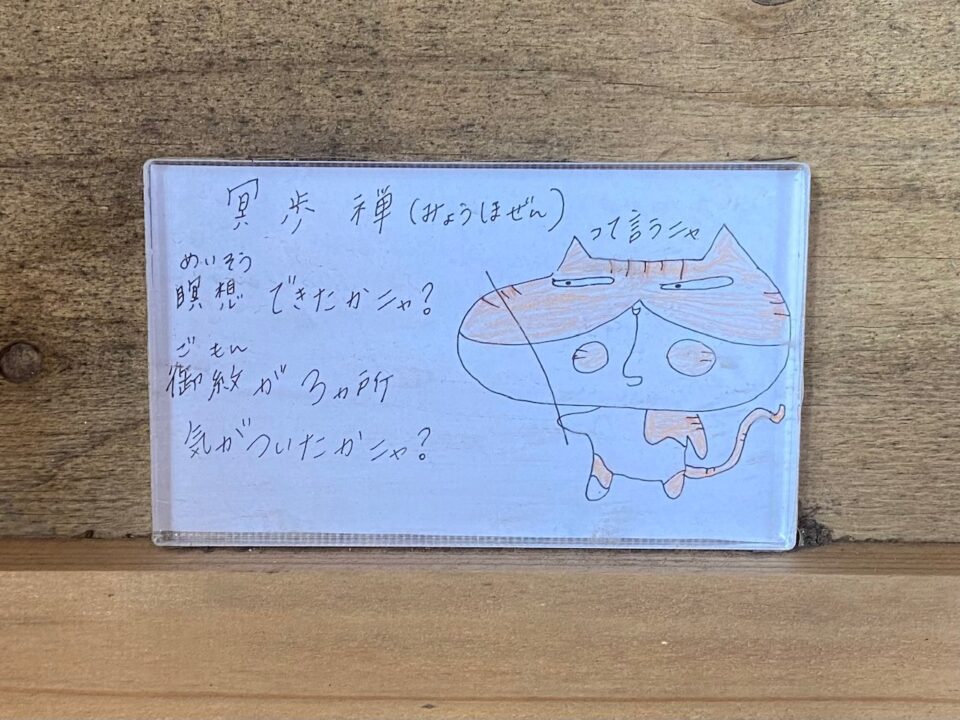 冥歩禅(みょうほぜん)
って言うニャ
めいそう
瞑想できたかニャ?
ごもん
御紋が3ヵ所
気がついたかニャ?